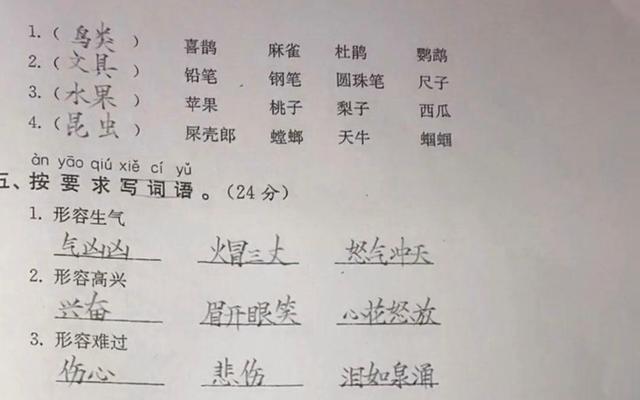 1. (鸟类) 喜鹊 麻雀 杜鹃 鹦鹉
2. (文具) 铅笔 钢笔 圆珠笔 尺子
3. (水果) 苹果 桃子 梨子 西瓜
4. (昆虫) 屎壳郎 螳螂 天牛 蝈蝈
àn yāo qiú xiě cí yǔ
五、按要求写词语。(24分)
1. 形容生气
气凶凶 火冒三丈 怒气冲天
2. 形容高兴
兴奋 眉开眼笑 心花怒放
3. 形容难过
伤心 悲伤 泪如泉涌